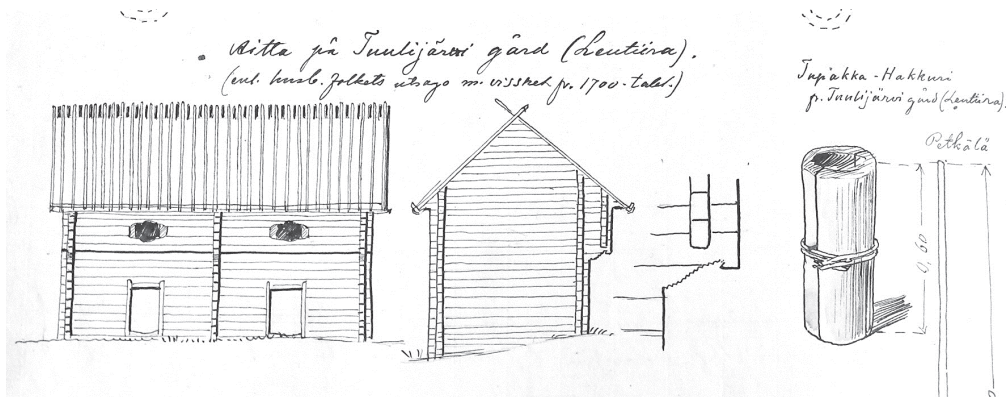 Aitta på Tuulijärvi gård (Lentiira).
(enl. husb. folkets utsago m. visshet fr. 1700-talet.)
Tupakka-Hakkuri
fr. Tuulijärvi gård (Lentiira).
Petkälä
0,60